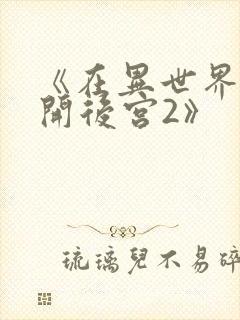 《在異世界
開後宮2》
琉璃兒不易碎